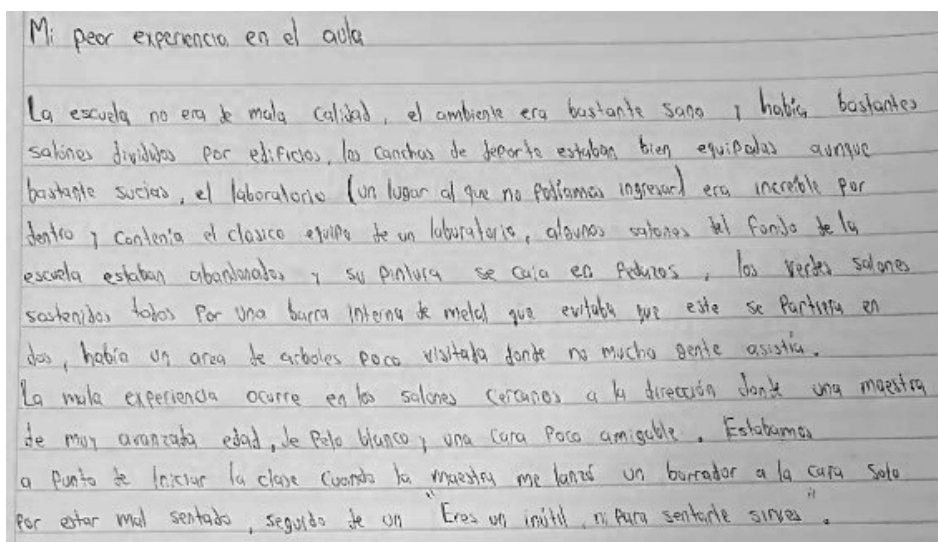 Mi peor experiencia en el aula
La escuela no era de mala calidad, el ambiente era bastante sano y había bastantes
salones divididos por edificios, las canchas de deporte estaban bien equipadas aunque
bastante sucias, el laboratorio (un lugar al que no podíamos ingresar) era increíble por
dentro y contenía el clasico equipo de un laboratorio, algunos salones del fondo de la
escuela estaban abandonados y su pintura se caia en pedazos, los verdes salones
sostenidos todos por una barra interna de metal que evitaba que este se partiera en
dos, había un area de arboles poco visitada donde no mucha gente asistía.
La mala experiencia ocurre en los salones cercanos a la dirección donde una maestra
de muy avanzada edad, de pelo blanco y una cara poco amigable. Estabamos
a punto de iniciar la clase cuando la maestra me lanzó un borrador a la cara solo
por estar mal sentado, seguido de un "Eres un inútil, ni para sentarte sirves".